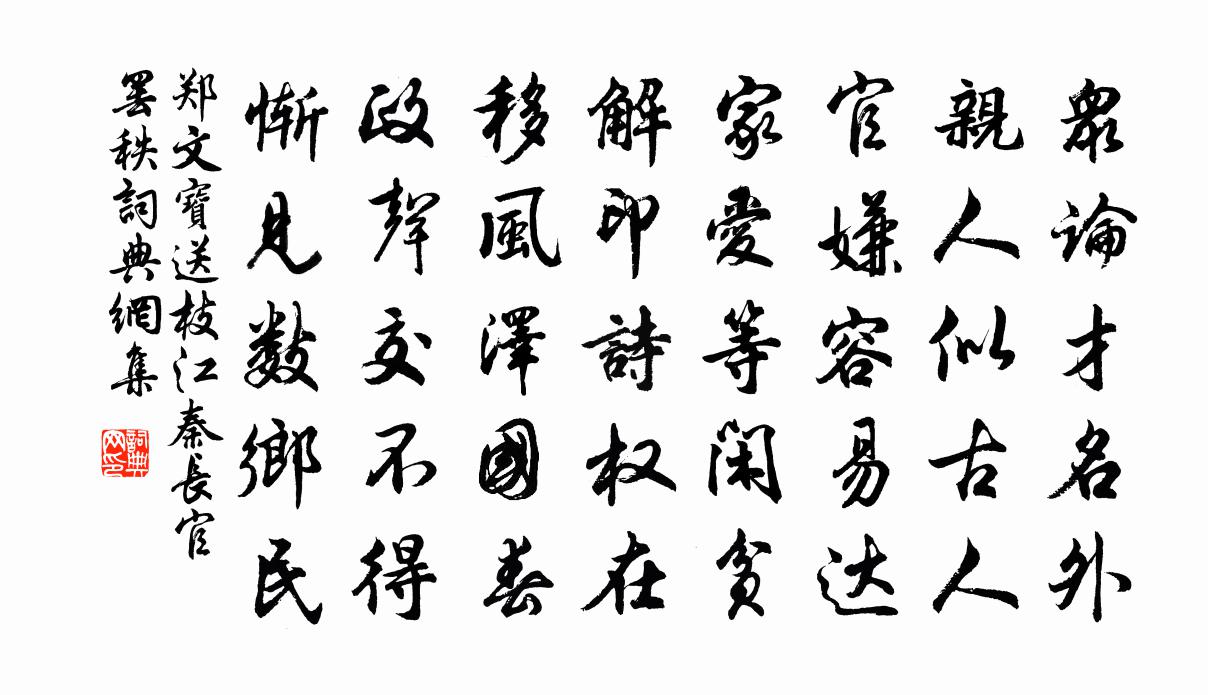 眾論才名外
親人似古人
官嫌容易达
家愛等閑貧
解印詩权在
移風澤國春
政聲交不得
慚見數鄉民
郑文寶送枝江秦長官
罢秩詞典網集
詞典网印